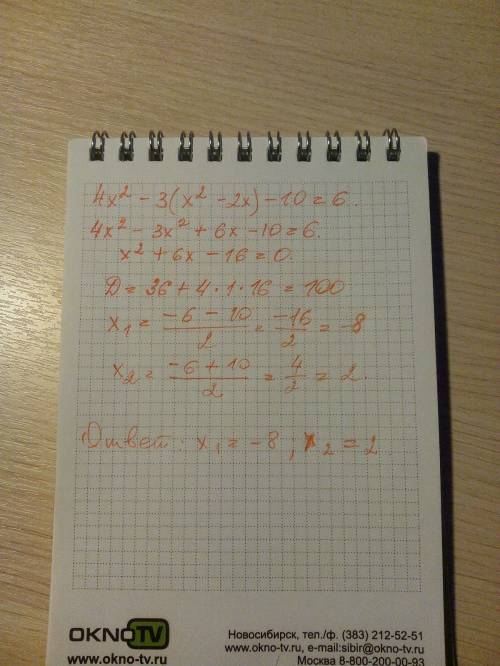 4x² - 3(x² - 2x) - 10 = 6.
4x² - 3x² + 6x - 10 = 6.
x² + 6x - 16 = 0.
D = 36 + 4 · 1 · 16 = 100
x₁ = (-6 - 10)/2 = -16/2 = -8
x₂ = (-6 + 10)/2 = 4/2 = 2.
Ответ: x₁ = -8 ; x₂ = 2.
OKNOTV
www.okno-tv.ru
Новосибирск, тел./ф. (383) 212-52-51
www.okno-tv.ru, e-mail:sibir@okno-tv.ru
Москва 8-800-200-00-93